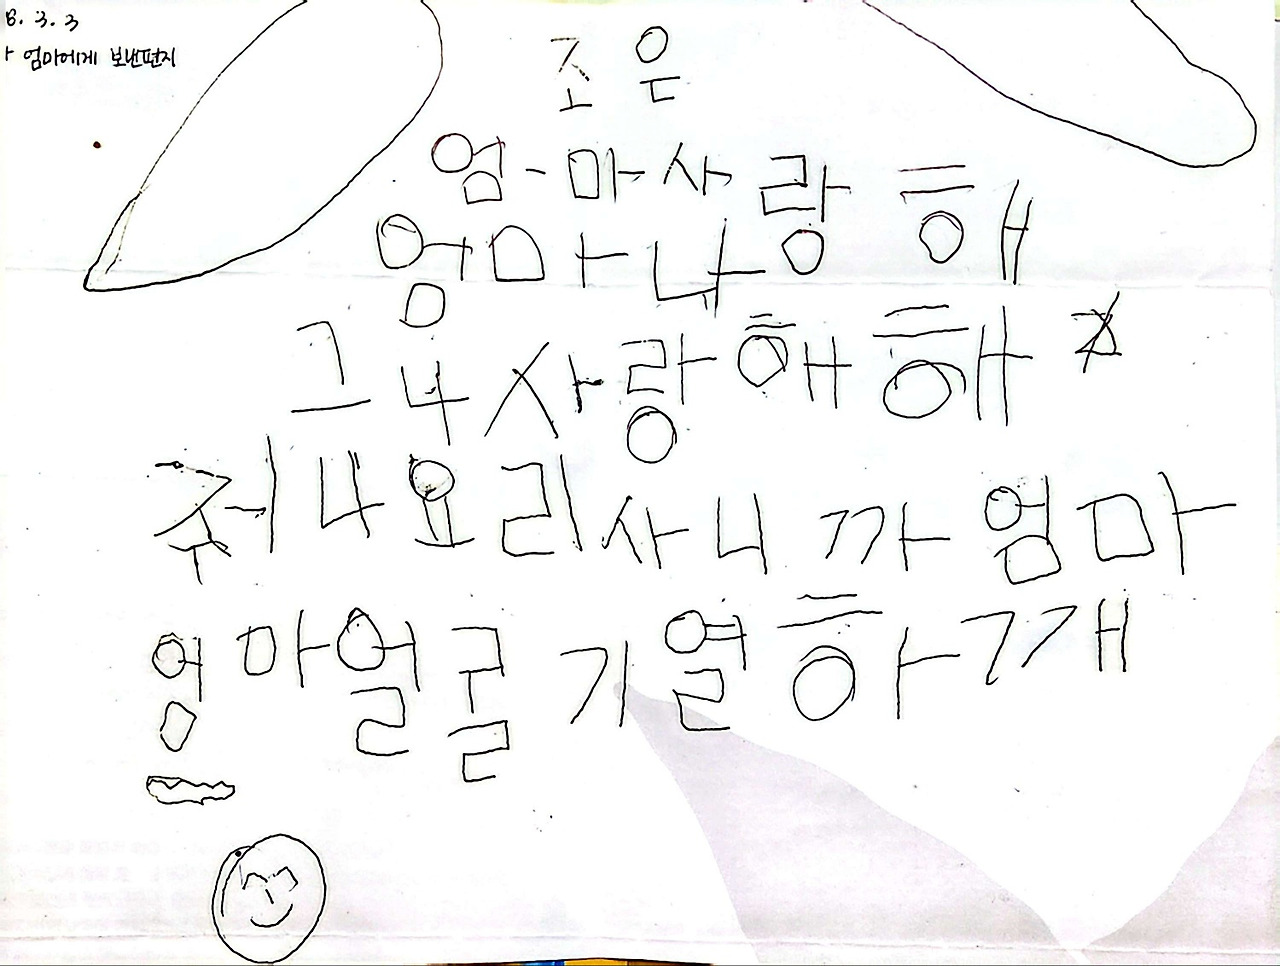 8. 3. 3
엄마에게 보낸편지
조은
엄-마사랑해
엄마나
그냐사랑해해
저나요리사니까엄마
엄마얼굴기열하께